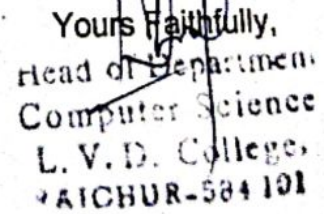 Yours Faithfully,
Head of Department
Computer Science
L. V. D. College,
RAICHUR-584 101